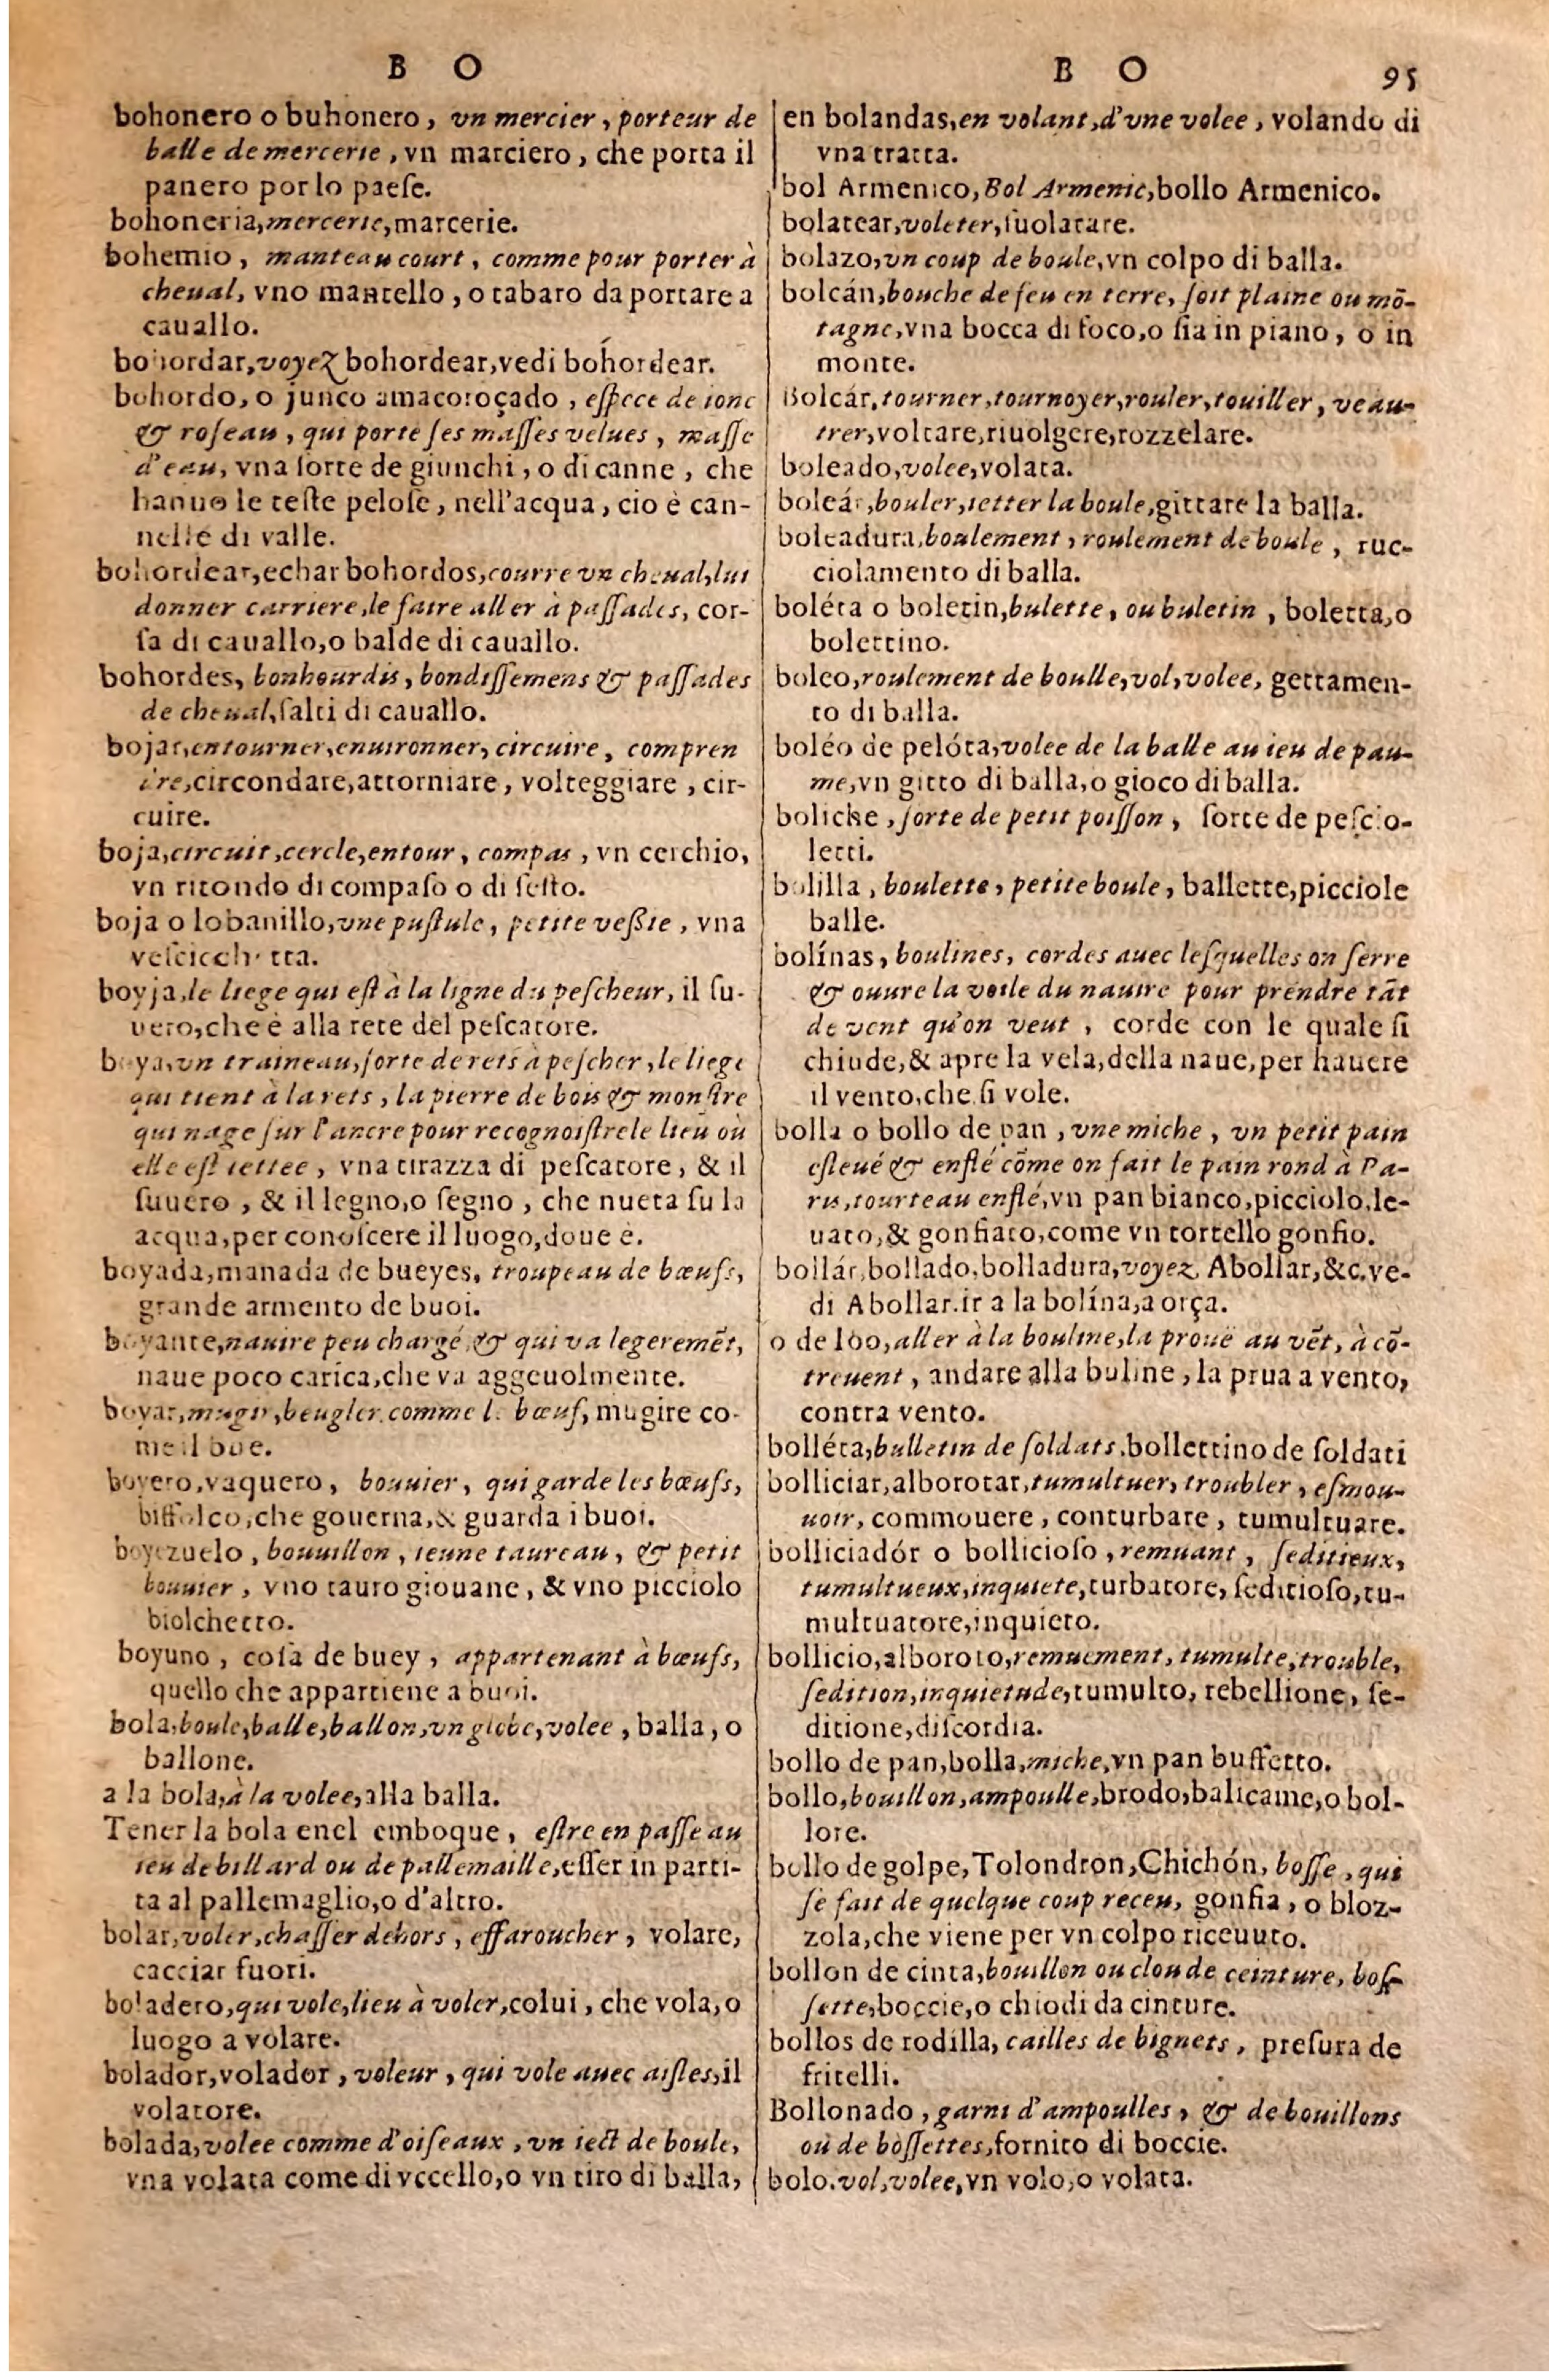 B O
bohonero o buhonero, vn mercier, porteur de
balle de mercerie, vn marciero, che porta il
panero por lo paeſe.
bohoneria, mercerie, marcerie.
bohemio, manteau court, comme pour porter à
cheual, vno mantello, o tabaro da portare a
cauallo.
bohordar, voyez bohordear, vedi bohordear.
bohordo, o junco amacoroçado, eſpece de ionc
& roſeau, qui porte ſes maſſes velues, maſſe
d'eau, vna ſorte de giunchi, o di canne, che
hanno le teſte peloſe, nell'acqua, cio è can-
nelle di valle.
bohordear, echar bohordos, courre vn cheual, lui
donner carriere, le faire aller à paſſades, cor-
ſa di cauallo, o balde di cauallo.
bohordes, bonhourdis, bondiſſemens & paſſades
de cheual, ſalti di cauallo.
bojar, entourner, enuironner, circuire, compren
dre, circondare, attorniare, volteggiare, cir-
cuire.
boja, circuit, cercle, entour, compas, vn cerchio,
vn ritondo di compaſo o di ſeſto.
boja o lobanillo, vne puſtule, petite veßie, vna
veſcicchetta.
boyja, le liege qui eſt à la ligne du peſcheur, il ſu-
uero, che è alla rete del peſcatore.
boya, vn traineau, ſorte de rets à peſcher, le liege
qui tient à la rets, la pierre de bois & monſtre
qui nage ſur l'ancre pour recognoiſtre le lieu où
elle eſt iettee, vna tirazza di peſcatore, & il
ſuuero, & il legno, o ſegno, che nueta ſu la
acqua, per conoſcere il luogo, doue è.
boyada, manada de bueyes, troupeau de bœufs,
grande armento de buoi.
boyante, nauire peu chargé, & qui va legeremẽt,
naue poco carica, che va aggeuolmente.
boyar, mugir, beugler comme le bœuf, mugire co-
me il boe.
boyero, vaquero, bouuier, qui garde les bœufs,
biffolco, che gouerna, & guarda i buoi.
boyezuelo, bouuillon, ieune taureau, & petit
bouuier, vno tauro giouane, & vno picciolo
biolchetto.
boyuno, coſa de buey, appartenant à bœufs,
quello che appartiene a buoi.
bola, boule, balle, ballon, vn globe, volee, balla, o
ballone.
a la bola, à la volee, alla balla.
Tener la bola enel emboque, eſtre en paſſe au
ieu de billard ou de pallemaille, eſſer in parti-
ta al pallemaglio, o d'altro.
bolar, voler, chaſſer dehors, effaroucher, volare,
cacciar fuori.
boladero, qui vole, lieu à voler, colui, che vola, o
luogo a volare.
bolador, volador, voleur, qui vole auec aiſles, il
volatore.
bolada, volee comme d'oiſeaux, vn iect de boule,
vna volata come di vccello, o vn tiro di balla,
B O 95
en bolandas, en volant, d'vne volee, volando di
vna tratta.
bol Armenico, Bol Armenic, bollo Armenico.
bolatear, voleter, ſuolatare.
bolazo, vn coup de boule, vn colpo di balla.
bolcán, bouche de feu en terre, ſoit plaine ou mõ-
tagne, vna bocca di foco, o ſia in piano, o in
monte.
Bolcár, tourner, tournoyer, rouler, touiller, veau-
trer, voltare, riuolgere, rozzelare.
boleado, volee, volata.
boleár, bouler, ietter la boule, gittare la balla.
boleadura, boulement, roulement de boule, ruc-
ciolamento di balla.
boléta o boletin, bulette, ou buletin, boletta, o
bolettino.
boleo, roulement de boulle, vol, volee, gettamen-
to di balla.
boléo de pelóta, volee de la balle au ieu de pau-
me, vn gitto di balla, o gioco di balla.
boliche, ſorte de petit poiſſon, ſorte de peſcio-
letti.
bolilla, boulette, petite boule, ballette, picciole
balle.
bolínas, boulines, cordes auec leſquelles on ſerre
& ouure la voile du nauire pour prendre tãt
de vent qu'on veut, corde con le quale ſi
chiude, & apre la vela, della naue, per hauere
il vento, che ſi vole.
bolla o bollo de pan, vne miche, vn petit pain
eſleué & enflé cõme on fait le pain rond à Pa-
ris, tourteau enflé, vn pan bianco, picciolo, le-
uato, & gonfiato, come vn tortello gonfio.
bollár, bollado, bolladura, voyez Abollar, &c. ve-
di Abollar. ir a la bolína, a orça.
o de lóo, aller à la bouline, la prouë au vẽt, à cõ-
treuent, andare alla buline, la prua a vento,
contra vento.
bolléta, bulletin de ſoldats, bollettino de ſoldati
bolliciar, alborotar, tumultuer, troubler, eſmou-
uoir, commouere, conturbare, tumultuare.
bolliciadór o bollicioſo, remuant, ſeditieux,
tumultueux, inquiete, turbatore, ſeditioſo, tu-
multuatore, inquieto.
bollicio, alboroto, remuement, tumulte, trouble,
ſedition, inquietude, tumulto, rebellione, ſe-
ditione, diſcordia.
bollo de pan, bolla, miche, vn pan buffetto.
bollo, bouillon, ampoulle, brodo, balicame, o bol-
lore.
bollo de golpe, Tolondron, Chichón, boſſe, qui
ſe fait de quelque coup receu, gonfia, o bloz-
zola, che viene per vn colpo riceuuto.
bollon de cinta, bouillon ou clou de ceinture, boſ-
ſette, boccie, o chiodi da cinture.
bollos de rodilla, cailles de bignets, preſura de
fritelli.
Bollonado, garni d'ampoulles, & de bouillons
ou de boſſettes, fornito di boccie.
bolo. vol, volee, vn volo, o volata.